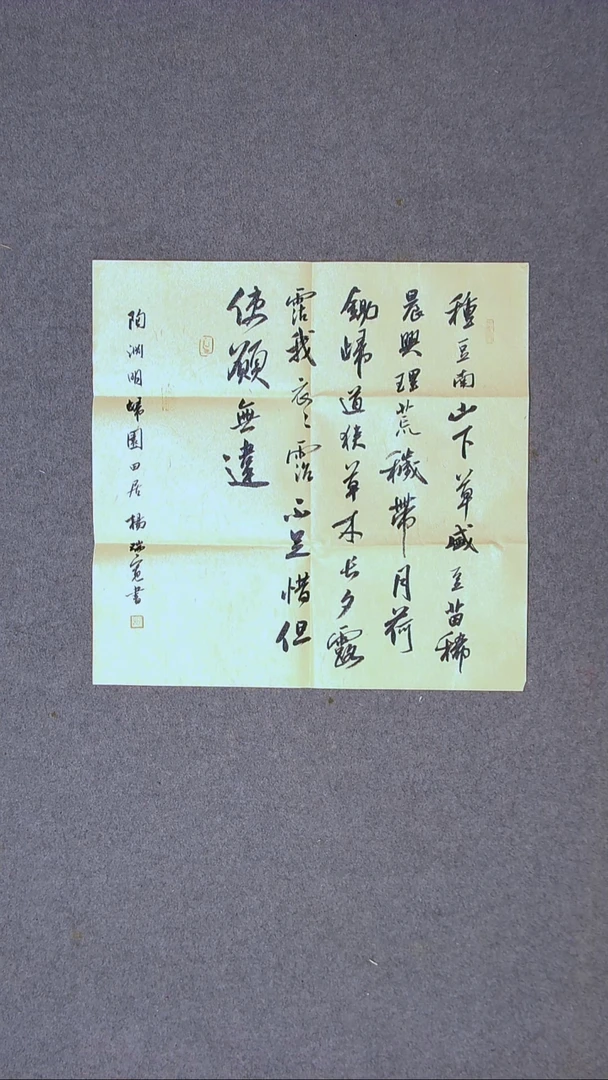 種豆南山下草盛豆苗稀
晨興理荒穢帶月荷
鋤歸道狹草木長夕露
霑我衣々霑不足惜但
使願無違
陶淵明歸園田居楊瑞寬書